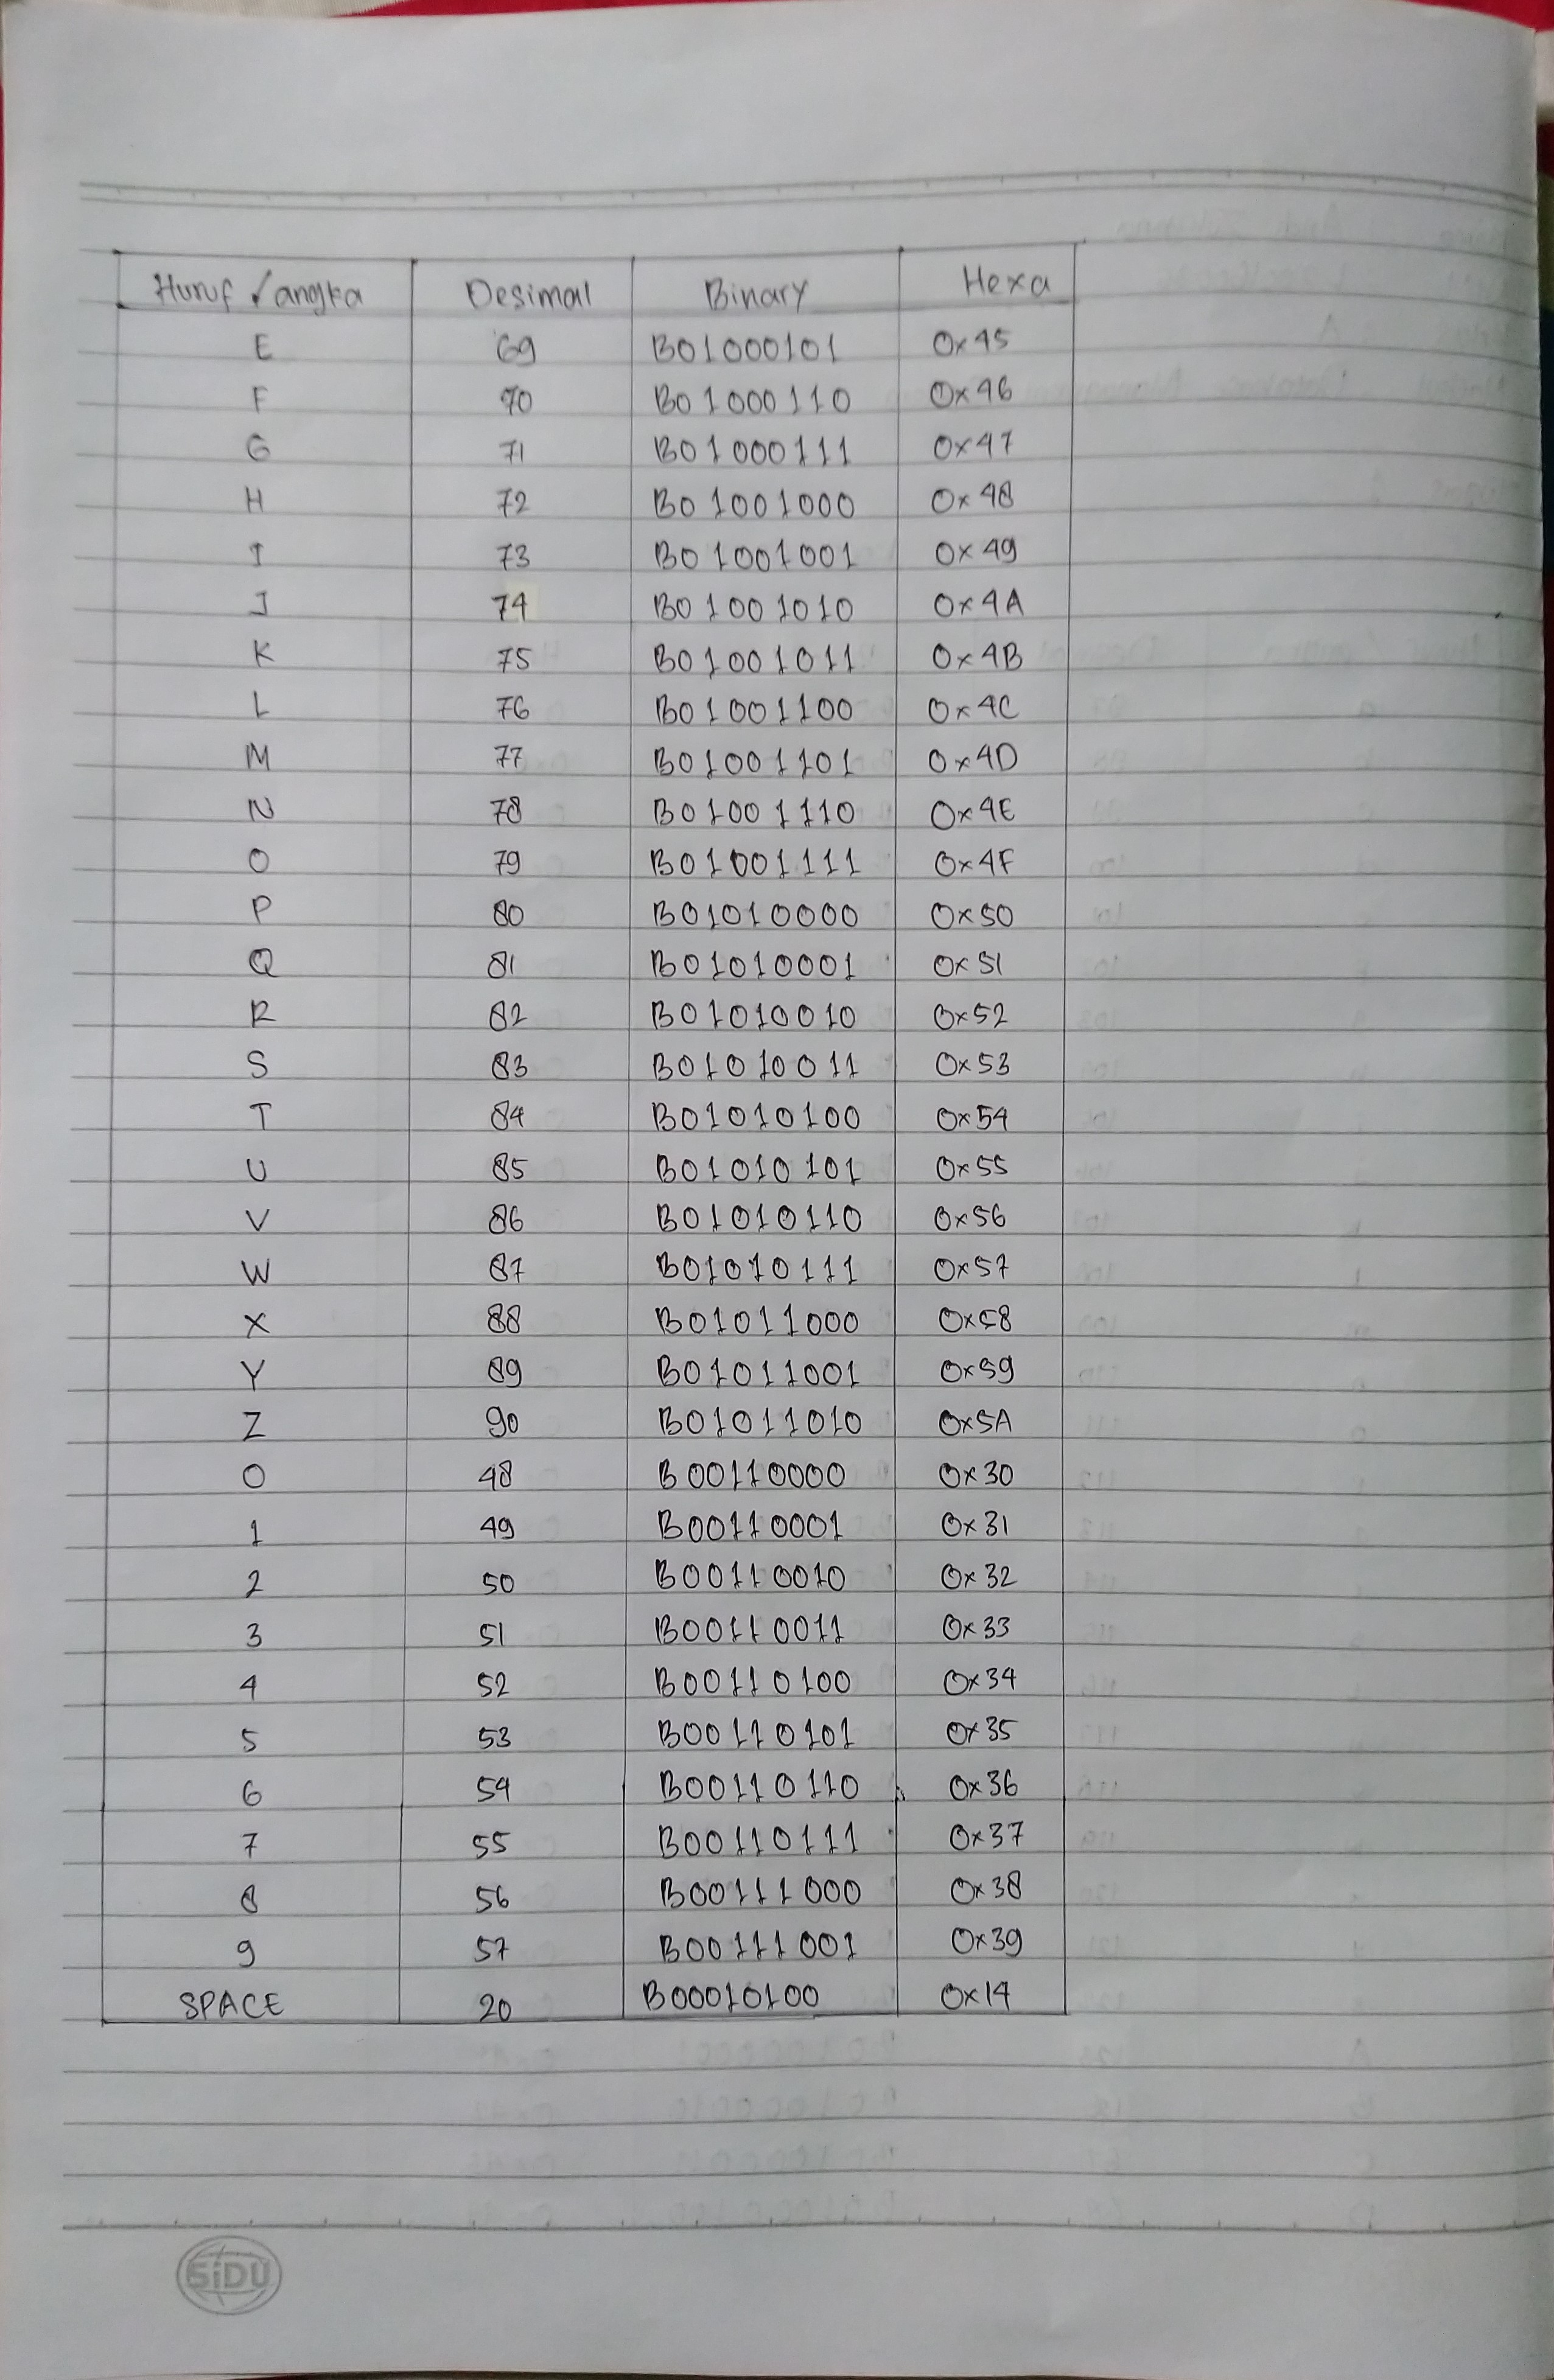 Huruf / angka Desimal Binary Hexa
E 69 B01000101 0x45
F 70 B01000110 0x46
G 71 B01000111 0x47
H 72 B01001000 0x48
I 73 B01001001 0x49
J 74 B01001010 0x4A
K 75 B01001011 0x4B
L 76 B01001100 0x4C
M 77 B01001101 0x4D
N 78 B01001110 0x4E
O 79 B01001111 0x4F
P 80 B01010000 0x50
Q 81 B01010001 0x51
R 82 B01010010 0x52
S 83 B01010011 0x53
T 84 B01010100 0x54
U 85 B01010101 0x55
V 86 B01010110 0x56
W 87 B01010111 0x57
X 88 B01011000 0x58
Y 89 B01011001 0x59
Z 90 B01011010 0x5A
0 48 B00110000 0x30
1 49 B00110001 0x31
2 50 B00110010 0x32
3 51 B00110011 0x33
4 52 B00110100 0x34
5 53 B00110101 0x35
6 54 B00110110 0x36
7 55 B00110111 0x37
8 56 B00111000 0x38
9 57 B00111001 0x39
SPACE 20 B00010100 0x14
SiDU